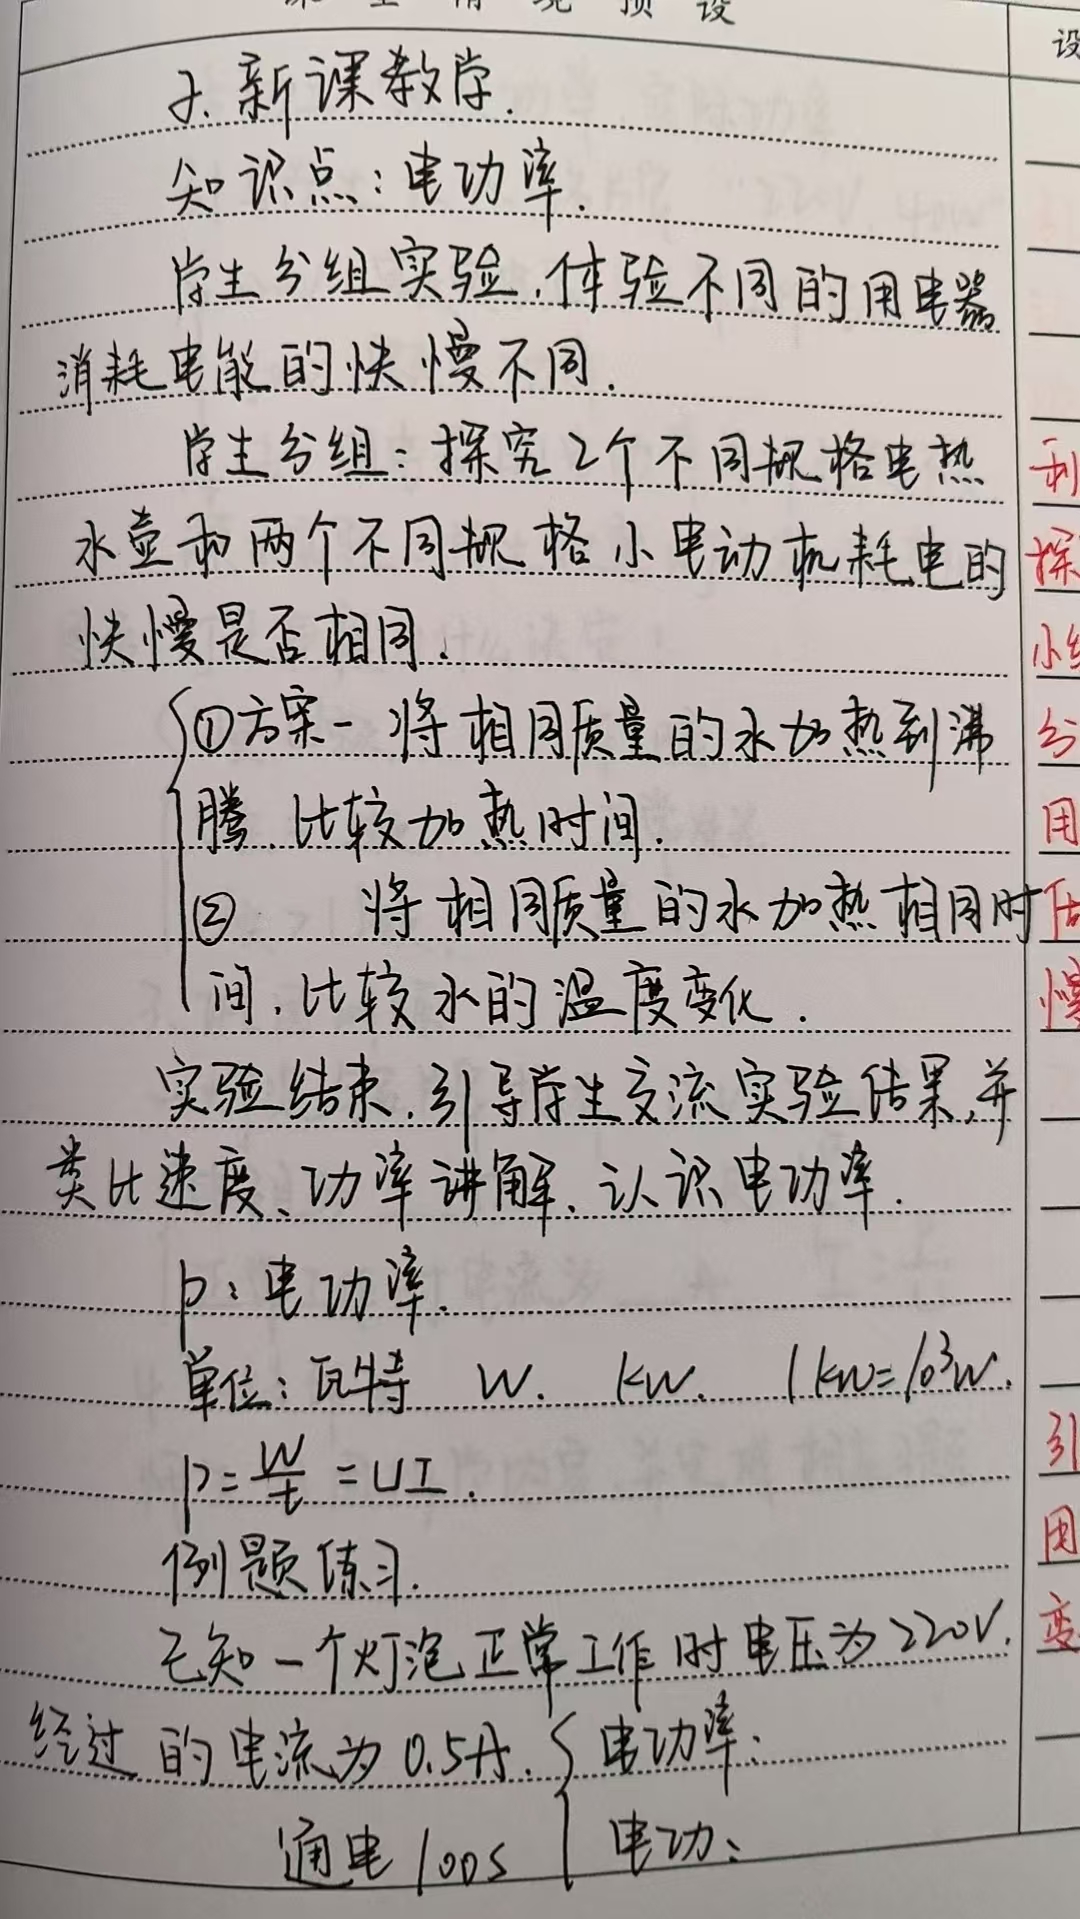 课堂情境预设
设
2. 新课教学.
知识点:电功率.
学生分组实验,体验不同的用电器
消耗电能的快慢不同.
学生分组:探究2个不同规格电热
水壶和两个不同规格小电动机耗电的
快慢是否相同.
①方案一 将相同质量的水加热到沸
腾,比较加热时间.
② 将相同质量的水加热相同时
间,比较水的温度变化.
实验结束,引导学生交流实验结果,并
类比速度、功率讲解,认识电功率.
p:电功率.
单位:瓦特 W. kW. 1kW=10³W.
p=W/t=UI.
例题练习.
已知一个灯泡正常工作时电压为220V.
经过的电流为0.5A. { 电功率:
通电100s 电功:
利
探
小组
分
用
估
慢
引
用
变